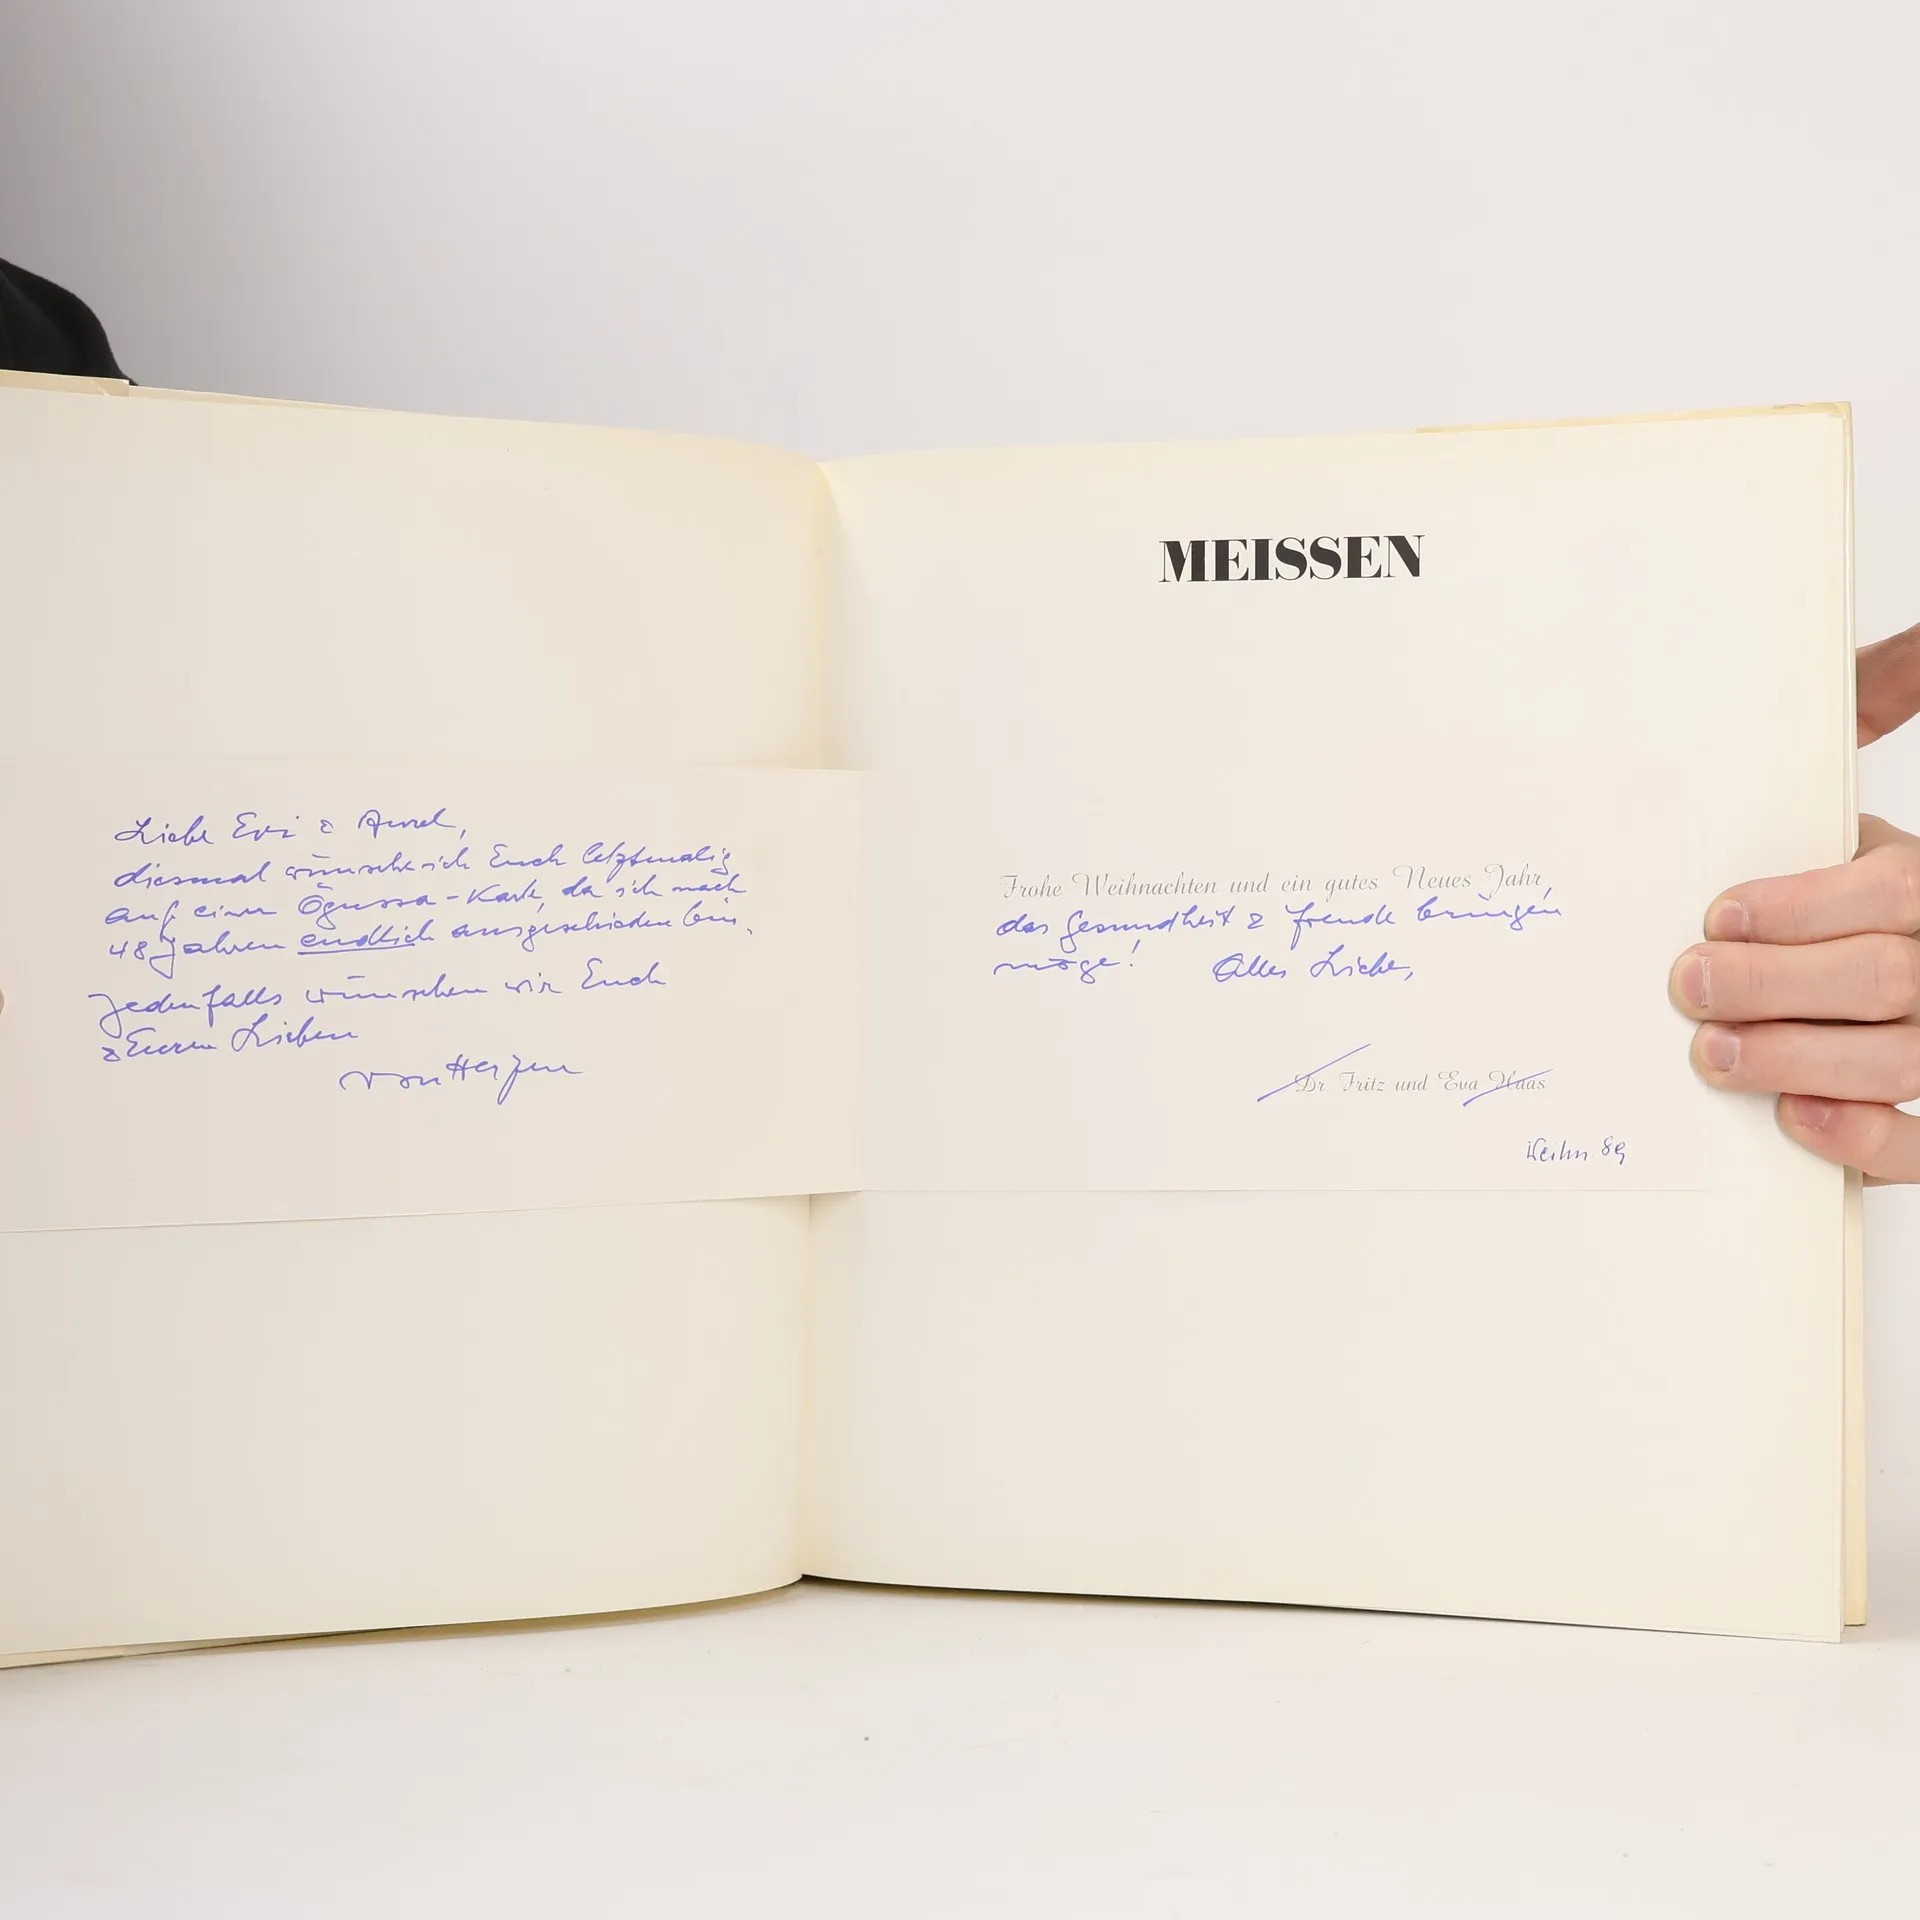 Liebe Evi & Aurel,
diesmal wünsche ich Euch letztmalig
auf einer Ögussa-Karte, da ich nach
48 Jahren endlich ausgeschieden bin.
Jedenfalls wünschen wir Euch
& Euren Lieben
von Herzen
MEISSEN
Frohe Weihnachten und ein gutes Neues Jahr,
das Gesundheit & Freude bringen
möge! Alles Liebe,
Dr. Fritz und Eva Haas
Weihn. 89